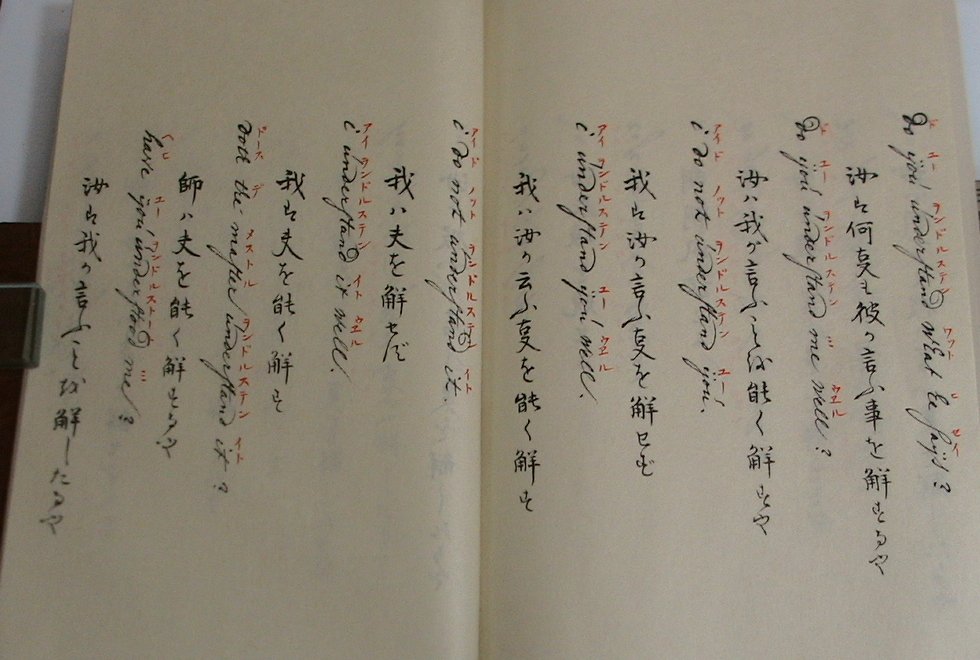 ド ユー ヲンドルステンデ ワット ヒ セイ
Do you understand what he says?
汝は何叓を彼の言ふ事を解するや
ド ユー ヲンドルステン ミー ウエル
Do you understand me well?
汝ハ我が言ふことを能く解すや
アイ ド ノット ヲンドルステン ユー
i do not understand you.
我は汝の言ふ叓を解せず
アイ ヲンドルステン ユー ウエル
i understand you well.
我ハ汝の云ふ叓を能く解す
アイ ド ノット ヲンドルステン イト
i do not understand it.
我ハ夫を解せず
アイ ヲンドルステン イト ウエル
i understand it well.
我は夫を能く解す
ドース デ メストル ヲンドルステン イト
Doth the master understand it?
師ハ夫を能く解するや
ヘヒ ユー ヲンドルストート ミー
have you understood me?
汝は我の言ふことを解したるや